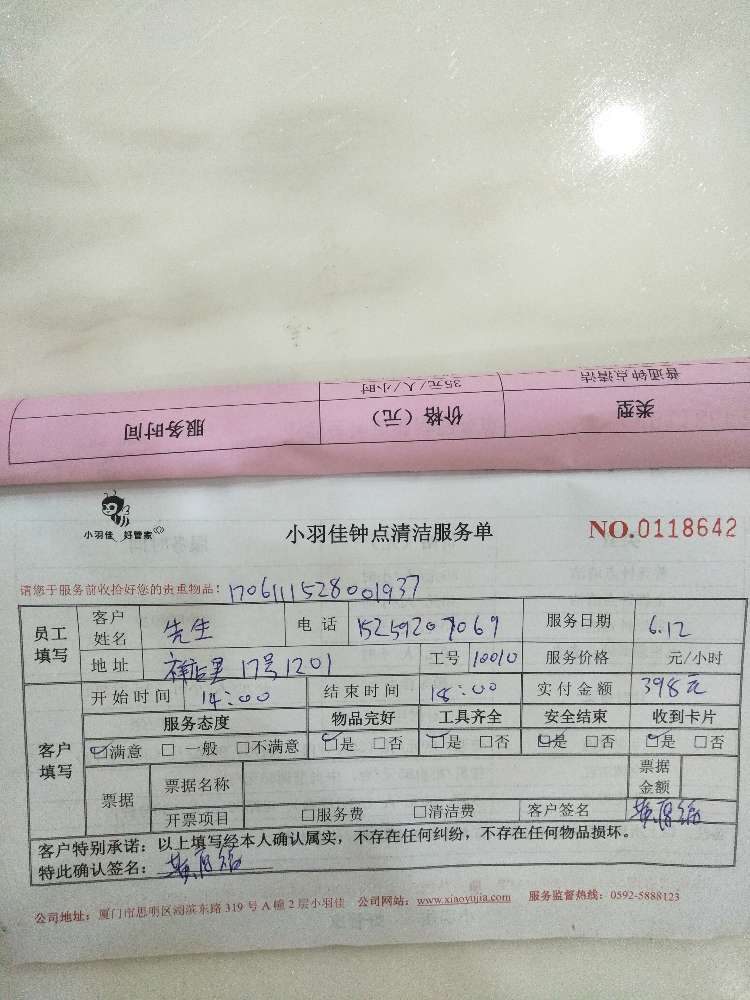 普通钟点清洁 35元/人/小时
类型 价格（元） 服务时间
小羽佳 好管家
小羽佳钟点清洁服务单
NO.0118642
请您于服务前收拾好您的贵重物品：1706111528001937
员工填写 客户姓名 先生 电话 15259207069 服务日期 6.12
地址 17号1201 工号 10010 服务价格 元/小时
客户填写 开始时间 14:00 结束时间 18:00 实付金额 398元
服务态度 物品完好 工具齐全 安全结束 收到卡片
☑满意 □一般 □不满意 ☑是 □否 ☑是 □否 ☑是 □否 ☑是 □否
票据 票据名称 票据金额
开票项目 □服务费 □清洁费 客户签名
客户特别承诺：以上填写经本人确认属实，不存在任何纠纷，不存在任何物品损坏。
特此确认签名：
公司地址：厦门市思明区湖滨东路319号A幢2层小羽佳 公司网站：www.xiaoyujia.com 服务监督热线：0592-5888123